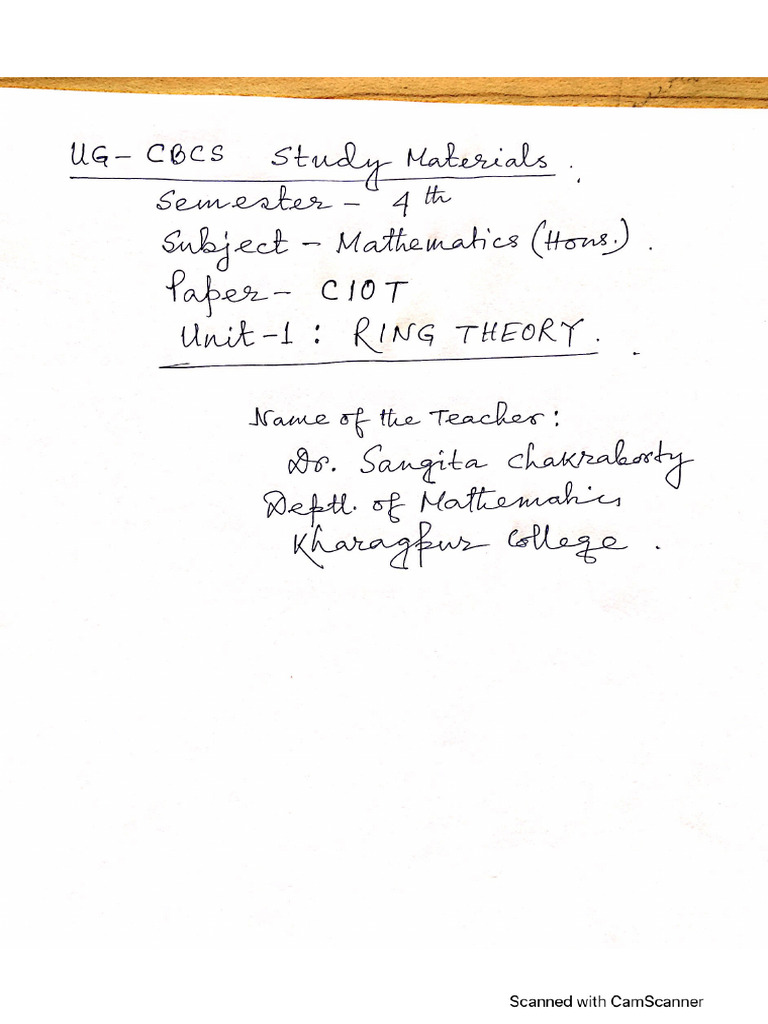 UG- CBCS Study Materials.
Semester - 4th
Subject - Mathematics (Hons.).
Paper - C10T
Unit-1 : RING THEORY.
Name of the Teacher:
Dr. Sangita Chakraborty
Deptt. of Mathematics
Kharagpur College.
Scanned with CamScanner